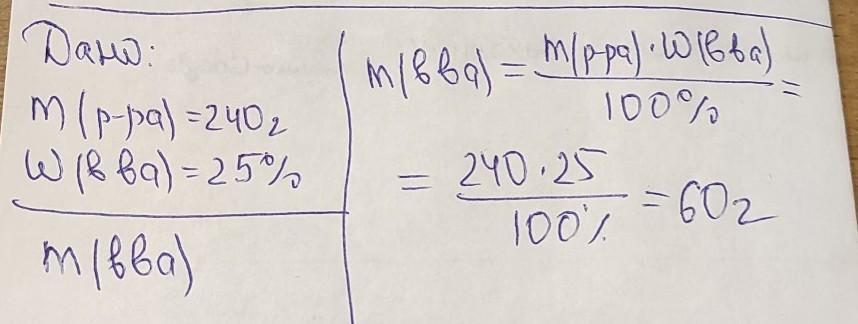 Дано:
m(р-ра)=240г
W(в ва)=25%
m(вва)
m(вва) = m(р-ра)·W(в ва) / 100% =
= 240·25 / 100% = 60г